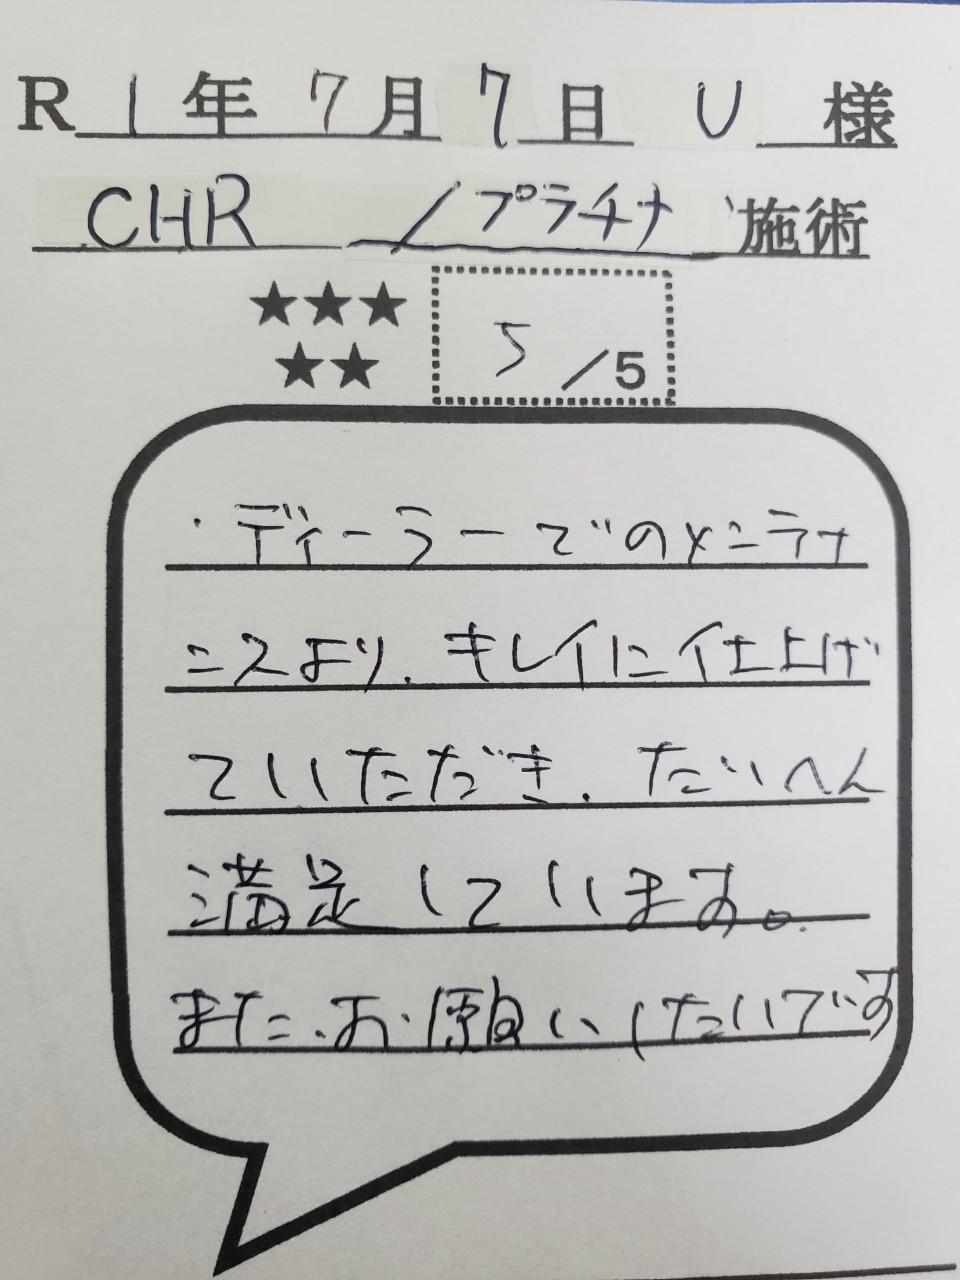 R1年7月7日 U様
CHR /プラチナ 施術
★★★
★★
5/5
・ディーラーでのメンテナ
ンスより、キレイに仕上げ
ていただき、たいへん
満足しています。
また、お願いしたいです